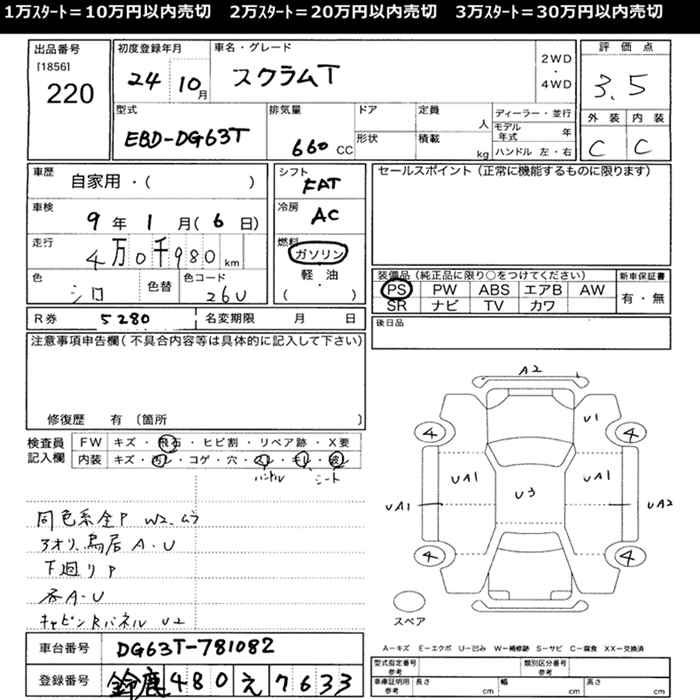 1万ｽﾀｰﾄ＝10万円以内売切　2万ｽﾀｰﾄ＝20万円以内売切　3万ｽﾀｰﾄ＝30万円以内売切
出品番号
[1856]
220
初度登録年月
24 10月
車名・グレード
スクラムT
2WD
・
4WD
評価点
3.5
型式
EBD-DG63T
排気量
660 CC
ドア
形状
定員
人
積載
kg
ディーラー・並行
モデル年式 年
ハンドル 左・右
外装 内装
C C
車歴
自家用・( )
車検
9年 1月(6日)
走行
4万0千980km
色
シロ
色替
色コード
26U
シフト
FAT
冷房
AC
燃料
ガソリン
軽・油
( )
セールスポイント（正常に機能するものに限ります）
装備品（純正品に限り○をつけてください）
PS PW ABS エアB AW
SR ナビ TV カワ
新車保証書
有・無
R券 5280 名変期限 月 日
後日品
注意事項申告欄(不具合内容等は具体的に記入して下さい)
修復歴 有〔箇所 〕
検査員記入欄
FW キズ・飛石・ヒビ割・リペア跡・X要
内装 キズ・汚レ・コゲ・穴・スレ・キレ・破レ
ハンドル シート
同色系全P W2.
アオリ.鳥居 A・U
下廻りP
各A・U
キャビンRパネル U2
A2
U1
4 4
UA1 UA1
U3
UA1 UA2
4 4
スペア
A－キズ E－エクボ U－凹み W－補修跡 S－サビ C－腐食 XX－交換済
車台番号 DG63T-781082
登録番号 鈴鹿 480 え 7633
型式指定番号 参考
類別区分番号 参考
車庫証明用 参考
長さ cm
幅 cm
高さ cm